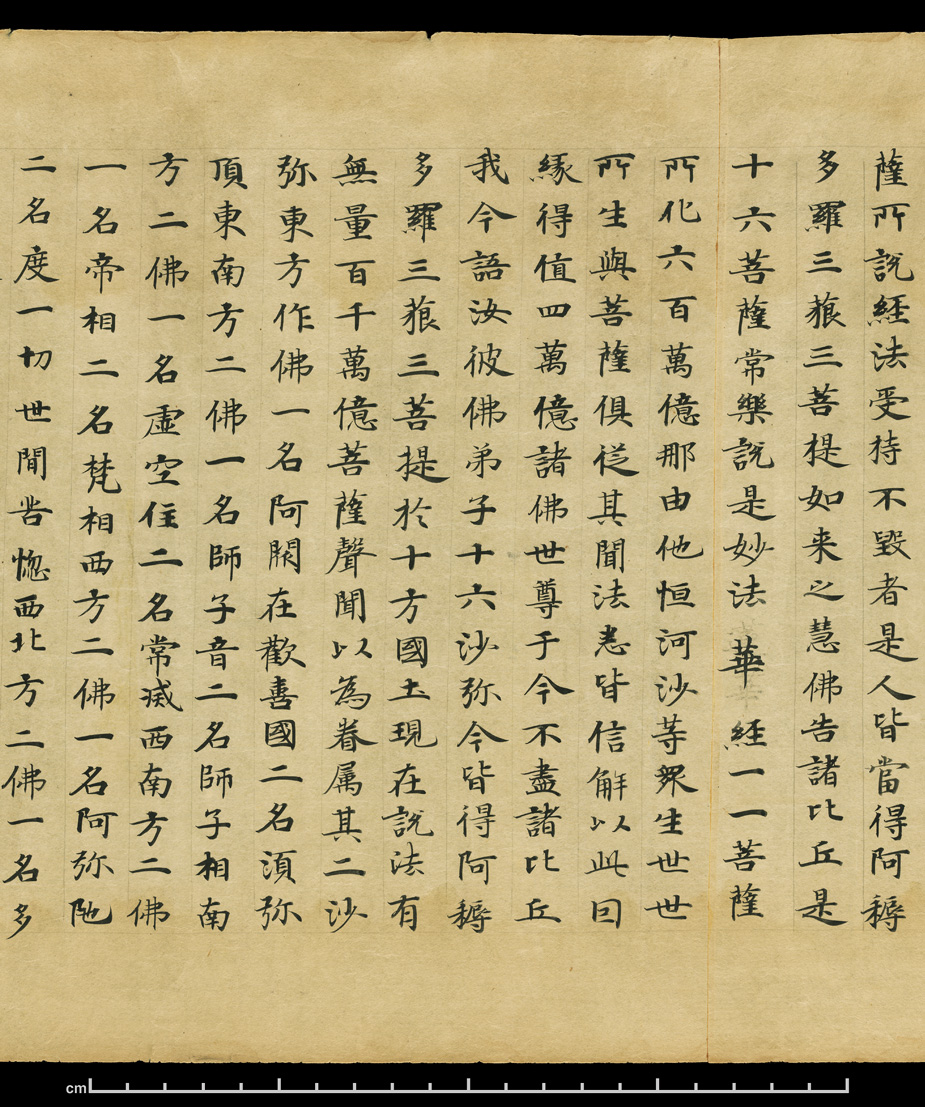 薩所說經法受持不毀者是人皆當得阿耨
多羅三藐三菩提如来之慧佛告諸比丘是
十六菩薩常樂說是妙法華經一一菩薩
所化六百萬億那由他恒河沙等衆生世世
所生與菩薩俱從其聞法悉皆信解以此因
緣得值四萬億諸佛世尊于今不盡諸比丘
我今語汝彼佛弟子十六沙弥今皆得阿耨
多羅三藐三菩提於十方國土現在說法有
無量百千萬億菩薩聲聞以為眷属其二沙
弥東方作佛一名阿閦在歡喜國二名須弥
頂東南方二佛一名師子音二名師子相南
方二佛一名虛空住二名常滅西南方二佛
一名帝相二名梵相西方二佛一名阿弥陁
二名度一切世間苦惱西北方二佛一名多